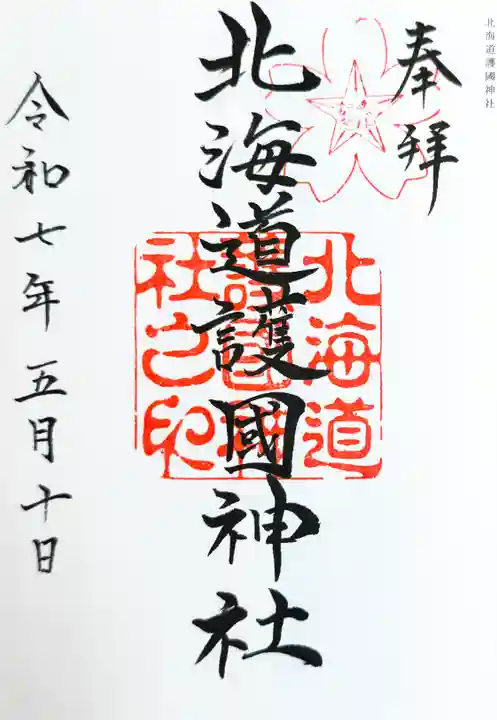 北海道護國神社
奉拝
北海道護國神社
北海道
護國神
社之印
令和七年五月十日